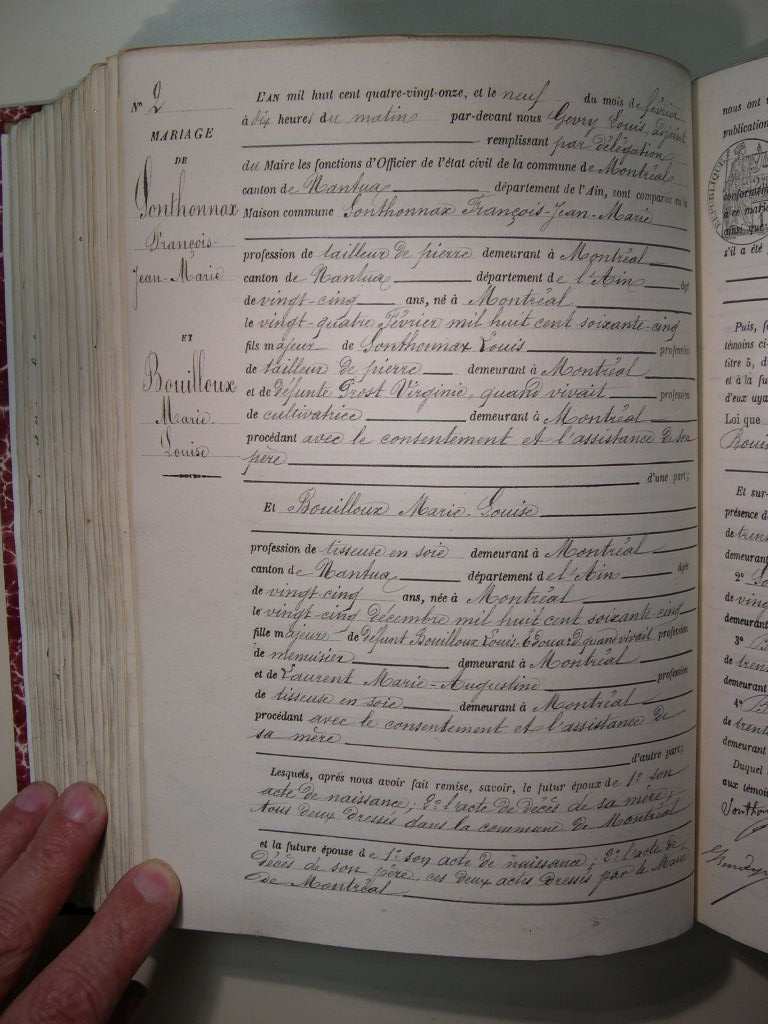 N° 2
MARIAGE
DE
Sonthonnax
François-
Jean-Marie
ET
Bouilloux
Marie-
Louise
L'AN mil huit cent quatre-vingt-onze, et le neuf du mois de février
à dix heures du matin par-devant nous Gevry Louis, adjoint
remplissant par délégation
du Maire les fonctions d'Officier de l'état civil de la commune de Montréal
canton de Nantua département de l'Ain, sont comparus en la
Maison commune Sonthonnax François-Jean-Marie
profession de tailleur de pierre demeurant à Montréal
canton de Nantua département de l'Ain âgé
de vingt-cinq ans, né à Montréal
le vingt-quatre Février mil huit cent soixante-cinq
fils majeur de Sonthonnax Louis profession
de tailleur de pierre demeurant à Montréal
et de défunte Grost Virginie, quand vivait profession
de cultivatrice demeurant à Montréal
procédant avec le consentement et l'assistance de son
père
d'une part;
Et Bouilloux Marie-Louise
profession de tisseuse en soie demeurant à Montréal
canton de Nantua département de l'Ain âgée
de vingt cinq ans, née à Montréal
le vingt-cinq décembre mil huit cent soixante-cinq
fille majeure de défunt Bouilloux Louis-Edouard quand vivait profession
de menuisier demeurant à Montréal
et de Laurent Marie-Augustine profession
de tisseuse en soie demeurant à Montréal
procédant avec le consentement et l'assistance de
sa mère
d'autre part;
Lesquels, après nous avoir fait remise, savoir, le futur époux de 1° son
acte de naissance; 2° l'acte de décès de sa mère;
tous deux dressés dans la commune de Montréal
et la future épouse de 1° son acte de naissance; 2° l'acte de
décès de son père, ces deux actes dressés par le Maire
de Montréal
nous ont
publication
RÉPUBLIQUE
à ce mari
ainsi que
s'il a été
Puis,
témoins ci-
titre 5, d
et à la fu
d'eux aya
Loi que
Boui
Et sur-
présence d
de tren
demeurant
2°
de ving
demeurant
3°
de tren
demeurant
4°
de trent
demeurant
Duquel
aux témoi
Sontho